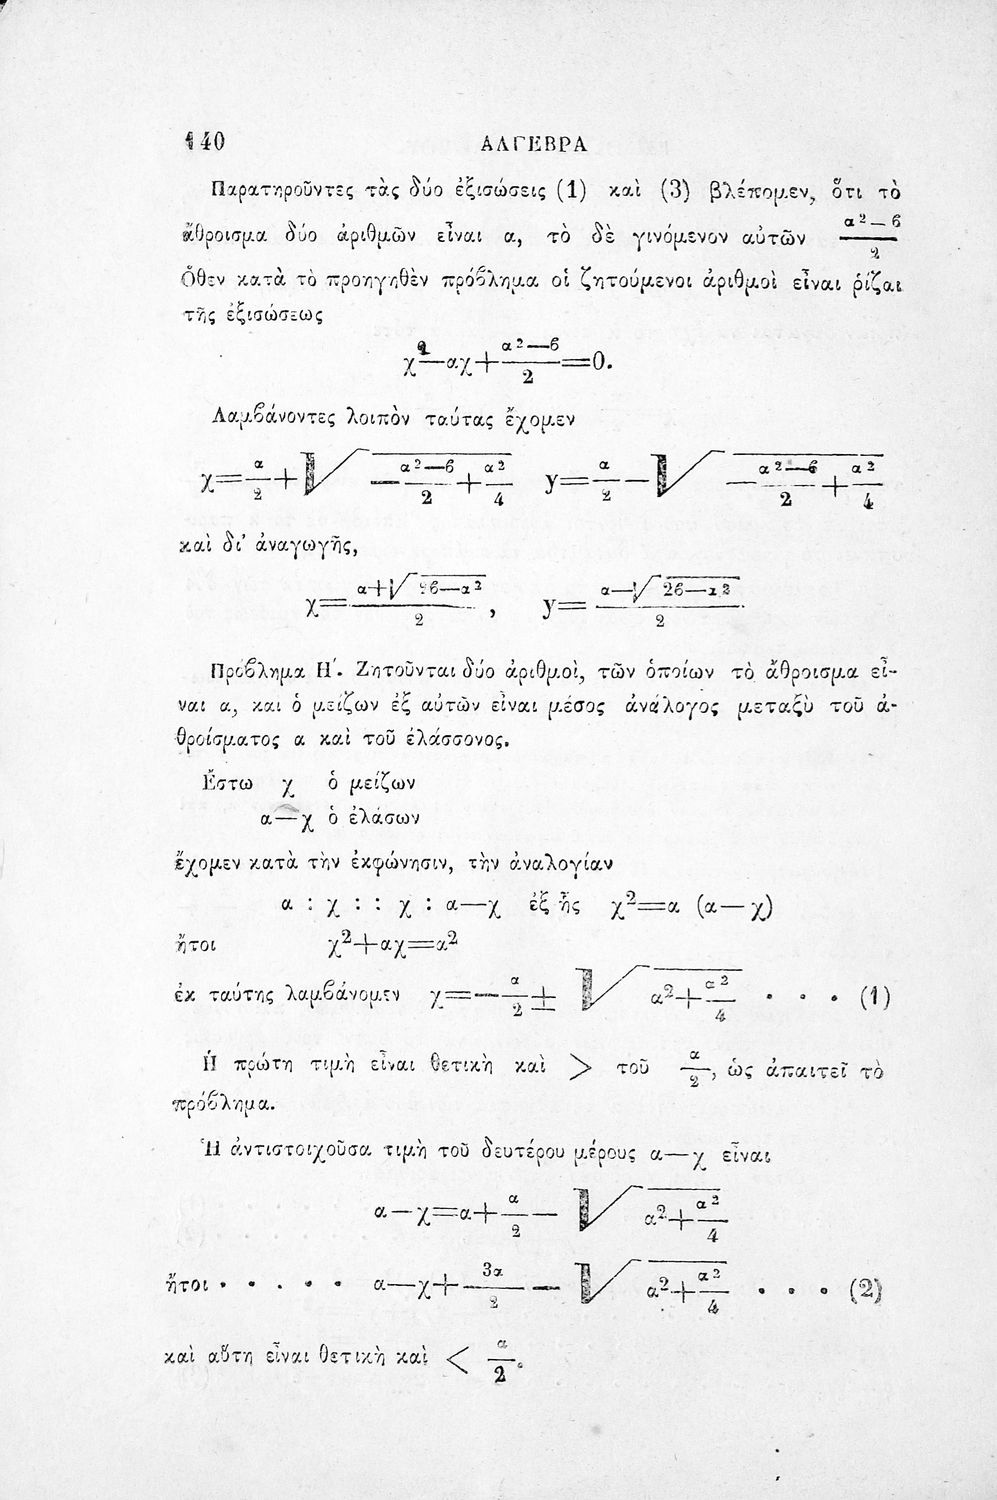 140 ΑΛΓΕΒΡΑ
Παρατηροῦντες τὰς δύο ἐξισώσεις (1) καὶ (3) βλέπομεν, ὅτι τὸ
ἄθροισμα δύο ἀριθμῶν εἶναι α, τὸ δὲ γινόμενον αὐτῶν (α²—β)/2
Ὅθεν κατὰ τὸ προηγηθὲν πρόβλημα οἱ ζητούμενοι ἀριθμοὶ εἶναι ῥίζαι
τῆς ἐξισώσεως
χ²—αχ+(α²—β)/2=0.
Λαμβάνοντες λοιπὸν ταύτας ἔχομεν
χ=α/2+√(—(α²—β)/2+α²/4) y=α/2—√(—(α²—β)/2+α²/4)
καὶ δι’ ἀναγωγῆς,
χ=(α+√(2β—α²))/2, y=(α—√(2β—α²))/2
Πρόβλημα Η΄. Ζητοῦνται δύο ἀριθμοὶ, τῶν ὁποίων τὸ ἄθροισμα εἶ-
ναι α, καὶ ὁ μείζων ἐξ αὐτῶν εἶναι μέσος ἀνάλογος μεταξὺ τοῦ ἀ-
θροίσματος α καὶ τοῦ ἐλάσσονος.
Ἔστω χ ὁ μείζων
α—χ ὁ ἐλάσων
ἔχομεν κατὰ τὴν ἐκφώνησιν, τὴν ἀναλογίαν
α : χ : : χ : α—χ ἐξ ἧς χ²=α (α—χ)
ἤτοι χ²+αχ=α²
ἐκ ταύτης λαμβάνομεν χ=—α/2±√(α²+α²/4) . . . (1)
Ἡ πρώτη τιμὴ εἶναι θετικὴ καὶ > τοῦ α/2, ὡς ἀπαιτεῖ τὸ
πρόβλημα.
Ἡ ἀντιστοιχοῦσα τιμὴ τοῦ δευτέρου μέρους α—χ εἶναι
α—χ=α+α/2—√(α²+α²/4)
ἤτοι . . . . . . α—χ+3α/2—√(α²+α²/4) . . . (2)
καὶ αὕτη εἶναι θετικὴ καὶ < α/2.